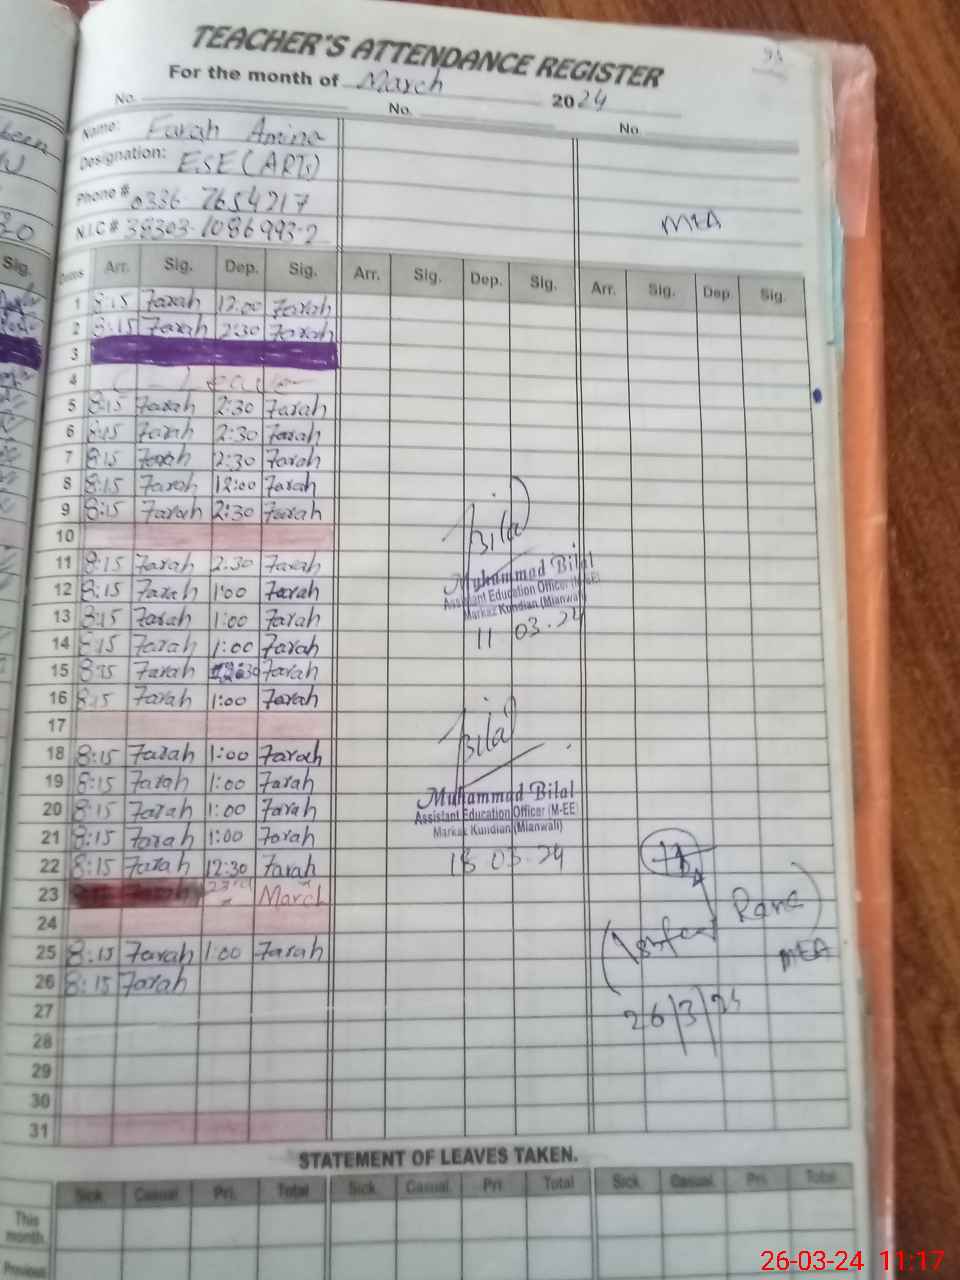 TEACHER'S ATTENDANCE REGISTER
For the month of March 2024
No. No. No.
Name: Farah Amina
Designation: ESE (ARTs)
Phone # 0336-7654217
N.I.C # 38303-1086993-2
MEA
Dates Arr. Sig. Dep. Sig. Arr. Sig. Dep. Sig. Arr. Sig. Dep Sig.
1 8:15 Farah 12:00 Farah
2 8:15 Farah 2:30 Farah
3
4 Leave
5 8:15 Farah 2:30 Farah
6 8:15 Farah 2:30 Farah
7 8:15 Farah 2:30 Farah
8 8:15 Farah 12:00 Farah
9 8:15 Farah 2:30 Farah
10
11 8:15 Farah 2:30 Farah
12 8:15 Farah 1:00 Farah
13 8:15 Farah 1:00 Farah
14 8:15 Farah 1:00 Farah
15 8:15 Farah Farah
16 8:15 Farah 1:00 Farah
17
18 8:15 Farah 1:00 Farah
19 8:15 Farah 1:00 Farah
20 8:15 Farah 1:00 Farah
21 8:15 Farah 1:00 Farah
22 8:15 Farah 12:30 Farah
23 23rd March
24
25 8:15 Farah 1:00 Farah
26 8:15 Farah
27
28
29
30
31
Bilal
Muhammad Bilal
Assistant Education Officer (M-EE)
Markaz Kundian (Mianwali)
11 03.24
Bilal
Muhammad Bilal
Assistant Education Officer (M-EE)
Markaz Kundian (Mianwali)
18 03.24
Rana
MEA
26/3/24
STATEMENT OF LEAVES TAKEN.
Sick Casual Pri. Total Sick Casual Pri Total Sick Casual Pri. Total
This month.
Previous
26-03-24 11:17